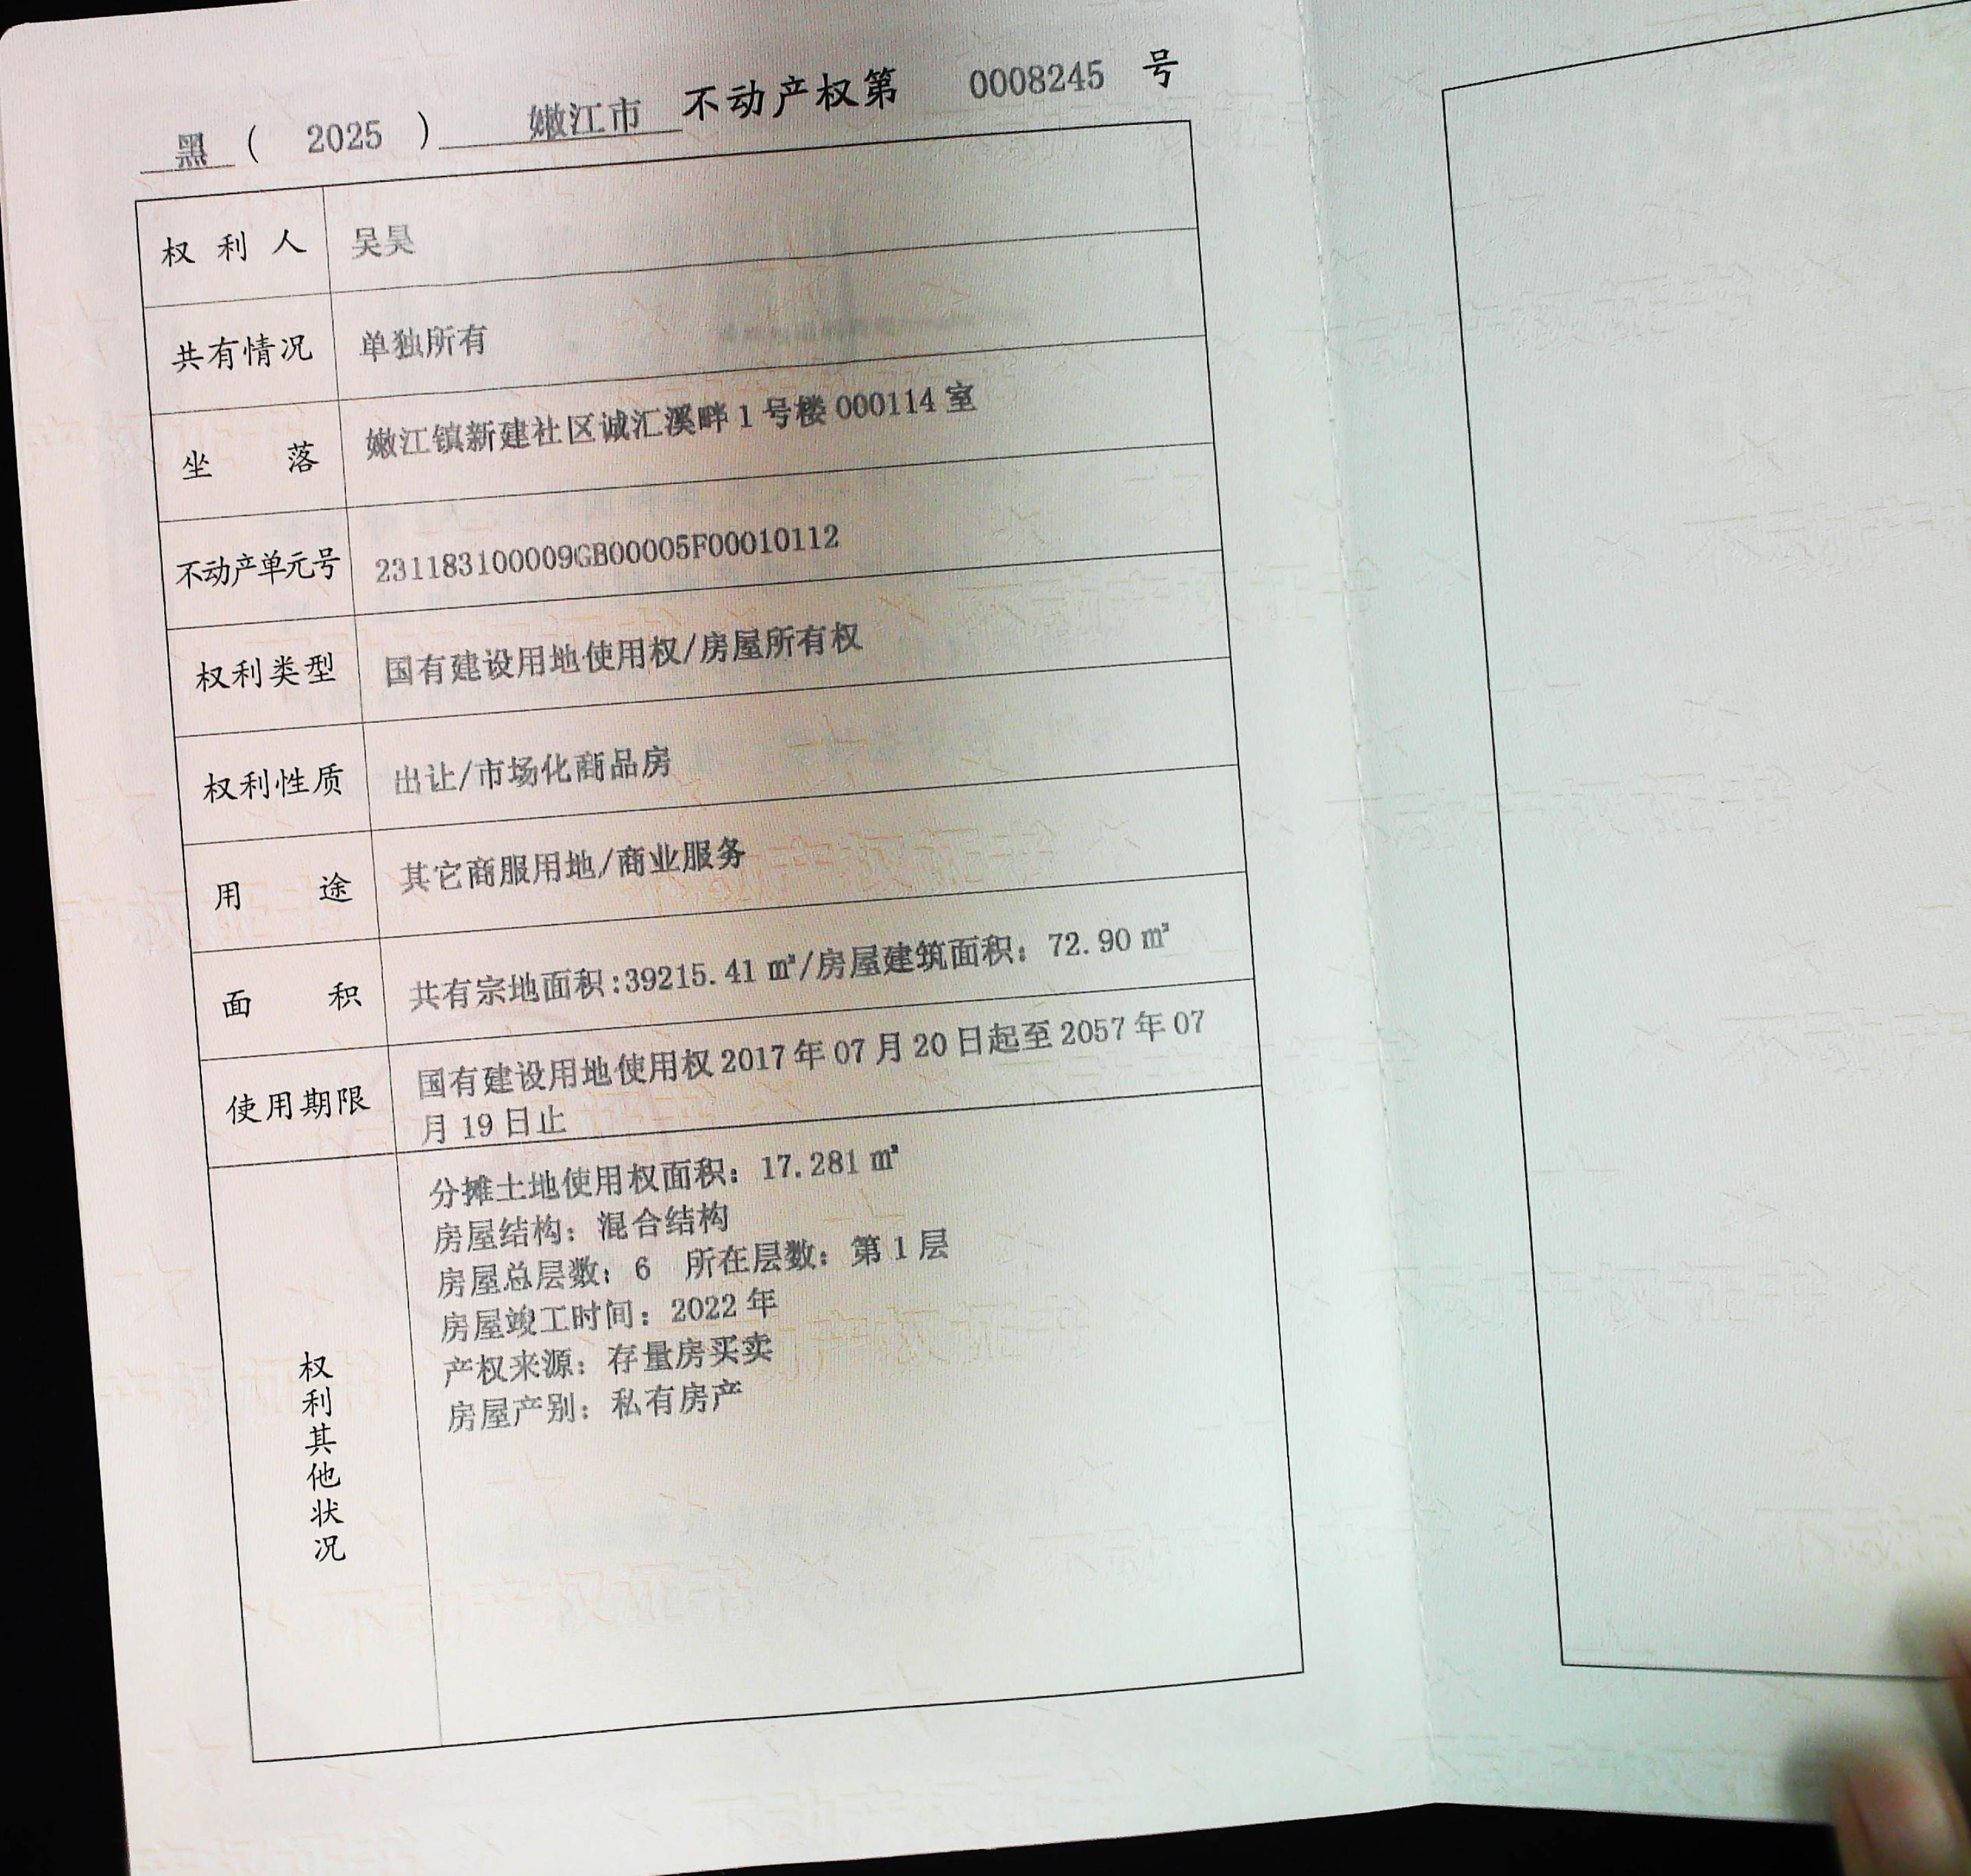 黑 ( 2025 ) 嫩江市 不动产权第 0008245 号
权利人 吴昊
共有情况 单独所有
坐落 嫩江镇新建社区诚汇溪畔1号楼000114室
不动产单元号 231183100009GB00005F00010112
权利类型 国有建设用地使用权/房屋所有权
权利性质 出让/市场化商品房
用途 其它商服用地/商业服务
面积 共有宗地面积:39215.41㎡/房屋建筑面积：72.90㎡
使用期限 国有建设用地使用权2017年07月20日起至2057年07
月19日止
权利其他状况
分摊土地使用权面积：17.281㎡
房屋结构：混合结构
房屋总层数：6 所在层数：第1层
房屋竣工时间：2022年
产权来源：存量房买卖
房屋产别：私有房产